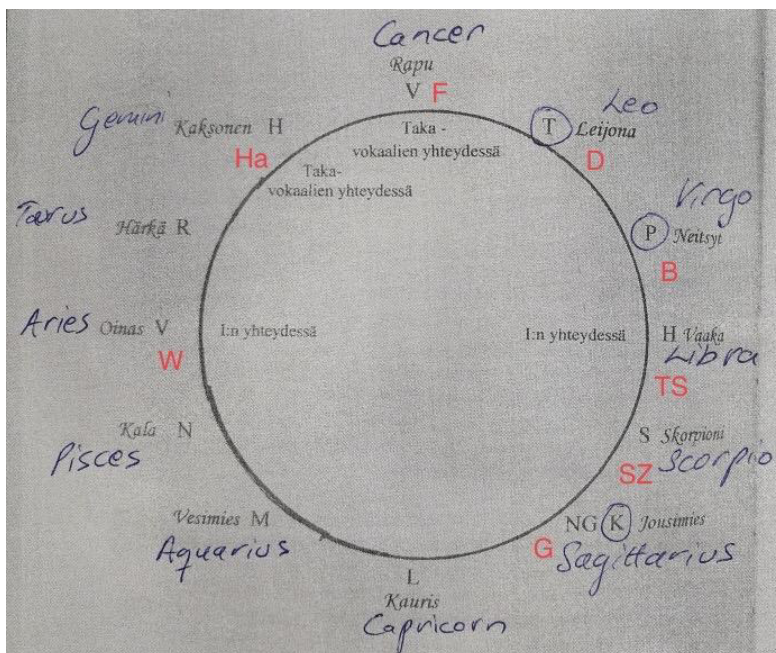 Cancer
Rapu
V F
Taka -
vokaalien yhteydessä
T Leijona
Leo
D
Virgo
P Neitsyt
B
I:n yhteydessä
H Vaaka
Libra
TS
S Skorpioni
SZ Scorpio
NG K Jousimies
G Sagittarius
L
Kauris
Capricorn
Vesimies M
Aquarius
Kala N
Pisces
Aries Oinas V
W
I:n yhteydessä
Taurus
Härkä R
Gemini
Kaksonen H
Ha
Taka-
vokaalien yhteydessä